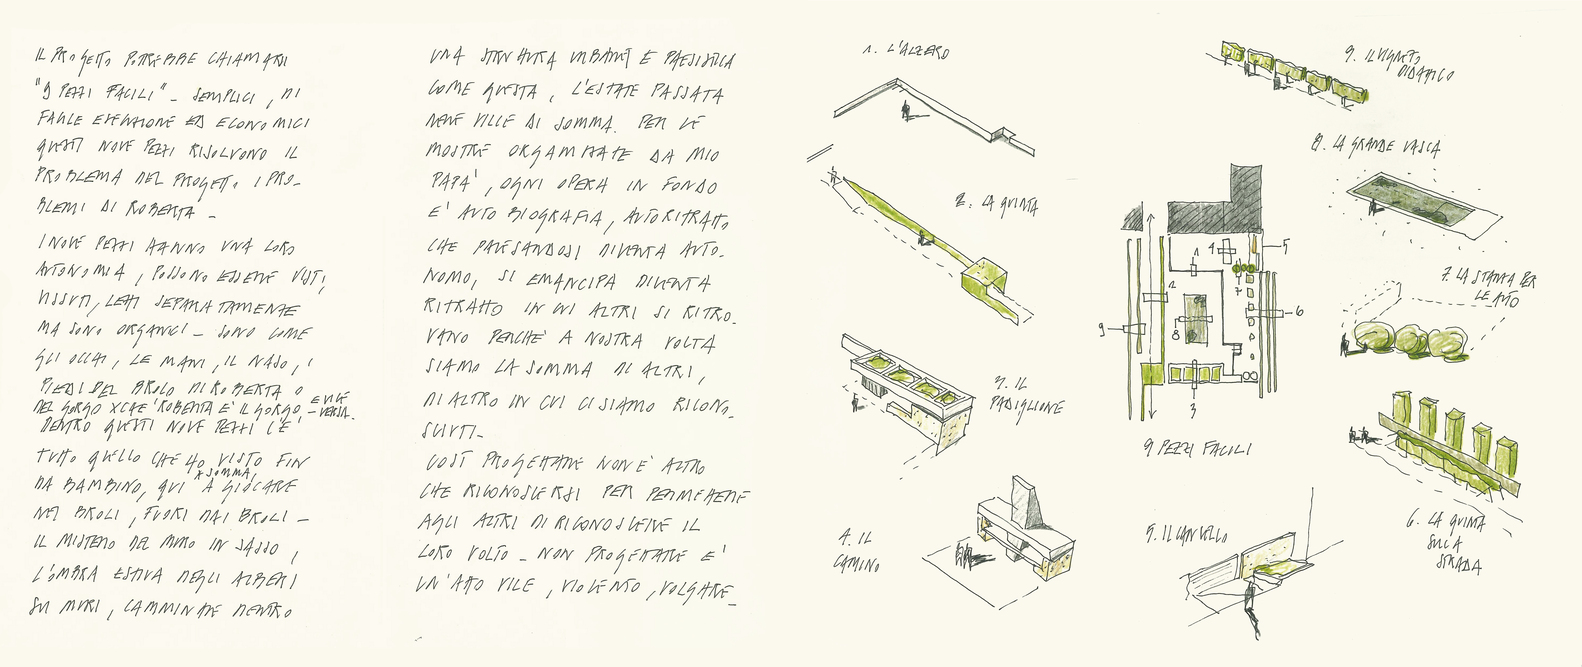 IL PROGETTO POTREBBE CHIAMARSI
"9 PEZZI FACILI" - SEMPLICI, DI
FACILE ESECUZIONE ED ECONOMICI
QUESTI NOVE PEZZI RISOLVONO IL
PROBLEMA DEL PROGETTO, I PRO-
BLEMI DI ROBERTA -
I NOVE PEZZI HANNO UNA LORO
AUTONOMIA, POSSONO ESSERE VISTI,
VISSUTI, LETTI SEPARATAMENTE
MA SONO ORGANICI - SONO COME
GLI OCCHI, LE MANI, IL NASO, I
PIEDI DEL BROLO DI ROBERTA O
DEL GORGO XCHE' ROBERTA E' IL GORGO E VICE
-VERSA.
DENTRO QUESTI NOVE PEZZI C'E'
TUTTO QUELLO CHE HO VISTO FIN
DA BAMBINO, QUI A SOMMA, A GIOCARE
NEI BROLI, FUORI DAI BROLI -
IL MISTERO DEL MURO IN SASSO,
L'OMBRA ESTIVA DEGLI ALBERI
SUI MURI, CAMMINARE DENTRO
UNA STRUTTURA URBANA E PAESISTICA
COME QUESTA, L'ESTATE PASSATA
NELLE VILLE DI SOMMA. PER LE
MOSTRE ORGANIZZATE DA MIO
PAPA', OGNI OPERA IN FONDO
E' AUTOBIOGRAFIA, AUTORITRATTO
CHE PALESANDOSI DIVENTA AUTO-
NOMO, SI EMANCIPA DIVENTA
RITRATTO IN CUI ALTRI SI RITRO-
VANO PERCHE' A NOSTRA VOLTA
SIAMO LA SOMMA DI ALTRI,
DI ALTRO IN CUI CI SIAMO RICONO-
SCIUTI-
COSÌ PROGETTARE NON E' ALTRO
CHE RICONOSCERSI PER PERMETTERE
AGLI ALTRI DI RICONOSCERE IL
LORO VOLTO - NON PROGETTARE E'
UN'ATTO VILE, VIOLENTO, VOLGARE_
1. L'ALZERO
2. LA QUINTA
3. IL
PADIGLIONE
4. IL
CAMINO
9
1
2
4
5
7
8
6
3
9 PEZZI FACILI
5. IL CANCELLO
9. IL VIGNETO
DIDATTICO
8. LA GRANDE VASCA
7. LA STANZA PER
LE AUTO
6. LA QUINTA
SULLA
STRADA